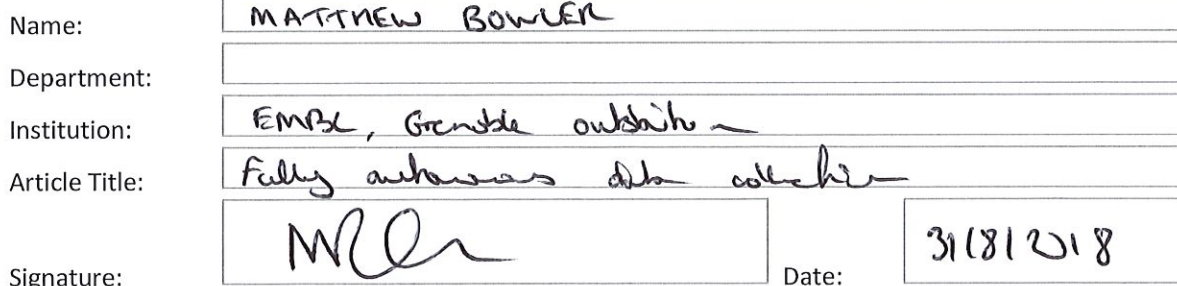 Name: MATTHEW BOWLER
Department:
Institution: EMBL, Grenoble outstation
Article Title: Fully autonomous data collection
Signature:
Date: 31/8/2018